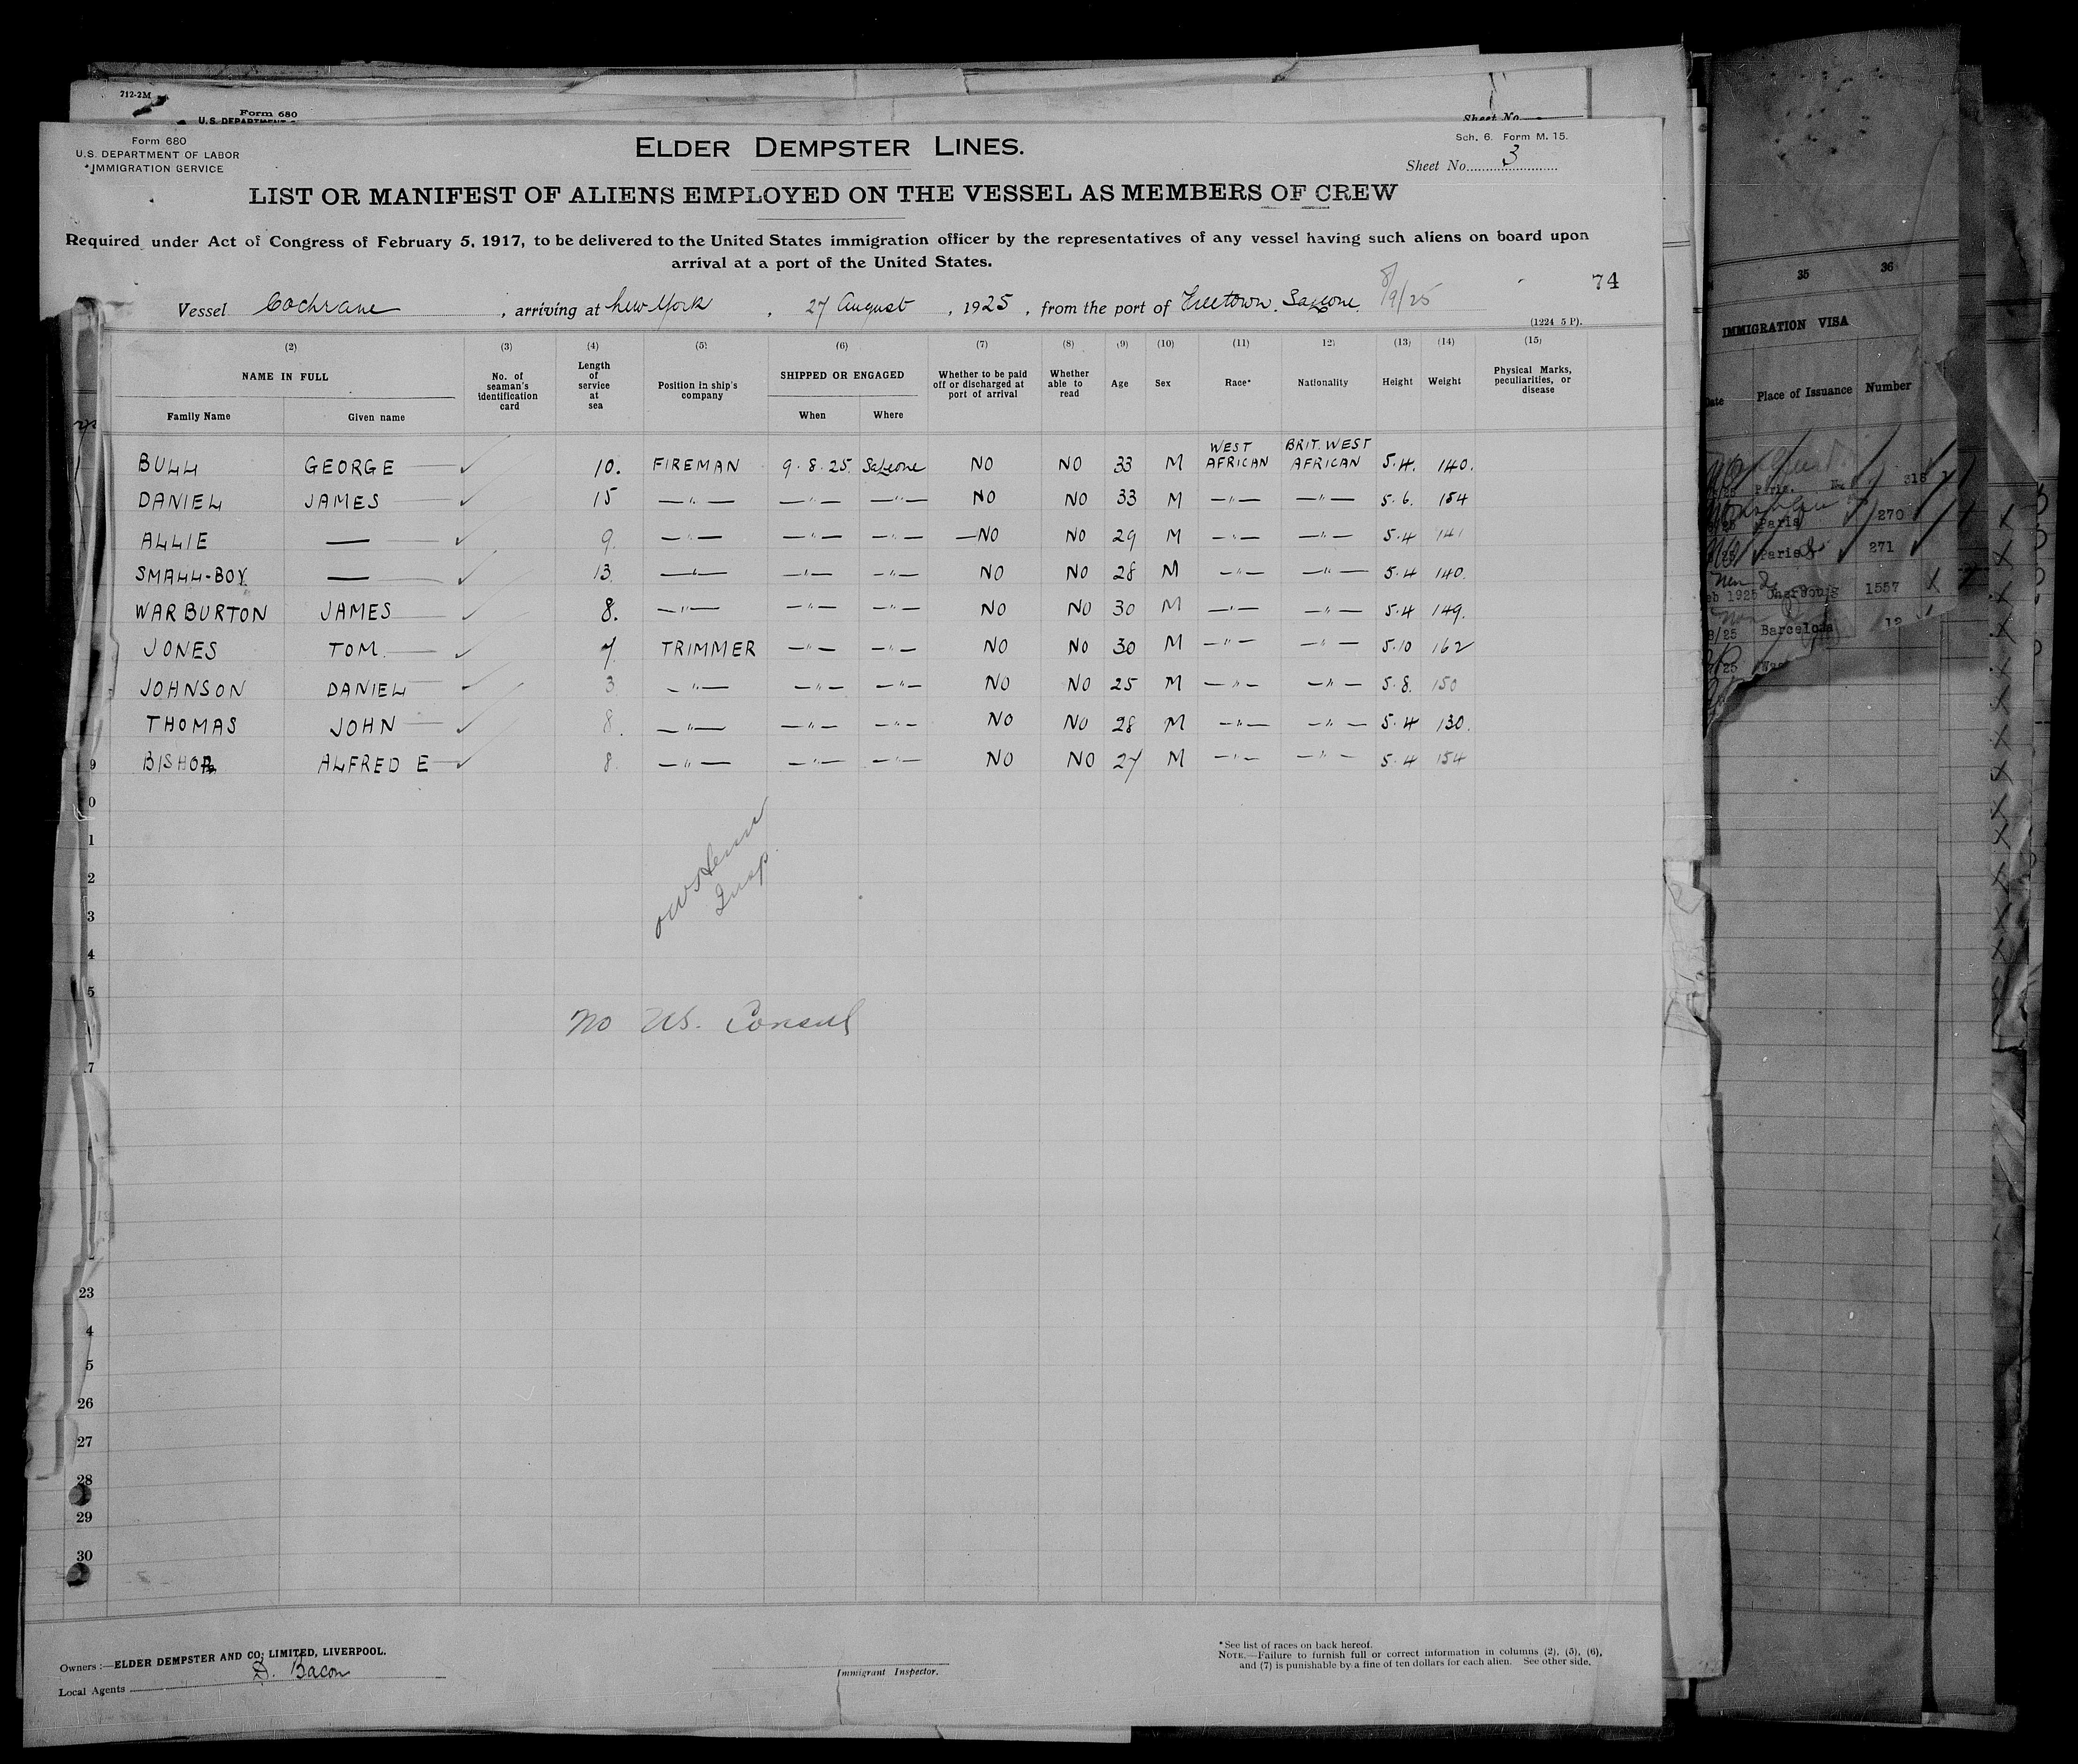 712-2M
Form 680
Sheet No.
Form 680
U.S. DEPARTMENT OF LABOR
*IMMIGRATION SERVICE
ELDER DEMPSTER LINES.
Sch. 6. Form M. 15.
Sheet No. 3
LIST OR MANIFEST OF ALIENS EMPLOYED ON THE VESSEL AS MEMBERS OF CREW
Required under Act of Congress of February 5, 1917, to be delivered to the United States immigration officer by the representatives of any vessel having such aliens on board upon
arrival at a port of the United States.
74
Vessel Cochrane, arriving at New York, 27 August, 1925, from the port of Freetown. SaLeone. 8/9/25
(1224 5 P).
(2) (3) (4) (5) (6) (7) (8) (9) (10) (11) 12) (13) (14) (15)
NAME IN FULL
Family Name Given name
No. of seaman's identification card
Length of service at sea
Position in ship's company
SHIPPED OR ENGAGED
When Where
Whether to be paid off or discharged at port of arrival
Whether able to read
Age Sex Race* Nationality Height Weight
Physical Marks, peculiarities, or disease
BULL GEORGE — ✓ 10. FIREMAN 9.8.25. SaLeone NO NO 33 M WEST AFRICAN BRIT. WEST AFRICAN 5.4. 140.
DANIEL JAMES — ✓ 15 —"— —"— —"— NO NO 33 M —"— —"— 5.6. 154
ALLIE — — ✓ 9. —"— —"— —"— —NO NO 29 M —"— —"— 5.4 141
SMALL-BOY — — ✓ 13. —"— —"— —"— NO NO 28 M —"— —"— 5.4 140.
WARBURTON JAMES — ✓ 8. —"— —"— —"— NO NO 30 M —"— —"— 5.4 149.
JONES TOM. — ✓ 7. TRIMMER —"— —"— NO NO 30 M —"— —"— 5.10 162
JOHNSON DANIEL — ✓ 3. —"— —"— —"— NO NO 25 M —"— —"— 5.8. 150
THOMAS JOHN — ✓ 8. —"— —"— —"— NO NO 28 M —"— —"— 5.4 130.
9 BISHOP ALFRED E — ✓ 8. —"— —"— —"— NO NO 27 M —"— —"— 5.4 154
0
1
2
Insp.
3
4
5
No U.S. Consul
7
23
4
5
26
27
28
29
30
Owners:—ELDER DEMPSTER AND CO, LIMITED, LIVERPOOL.
D. Bacon
Local Agents
Immigrant Inspector.
*See list of races on back hereof.
NOTE.—Failure to furnish full or correct information in columns (2), (5), (6),
and (7) is punishable by a fine of ten dollars for each alien. See other side.
35 36
IMMIGRATION VISA
Place of Issuance Number
Paris. 318
Paris 270
Paris 271
1925 Cherbourg 1557
Barcelona